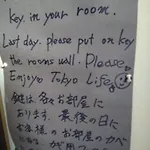 key. in your room.
Last day. please put on key
the rooms wall. Please
Enjoyo Tokyo Life
鍵は各々お部屋に
あります。最後の日に
お客様のお部屋のカベに